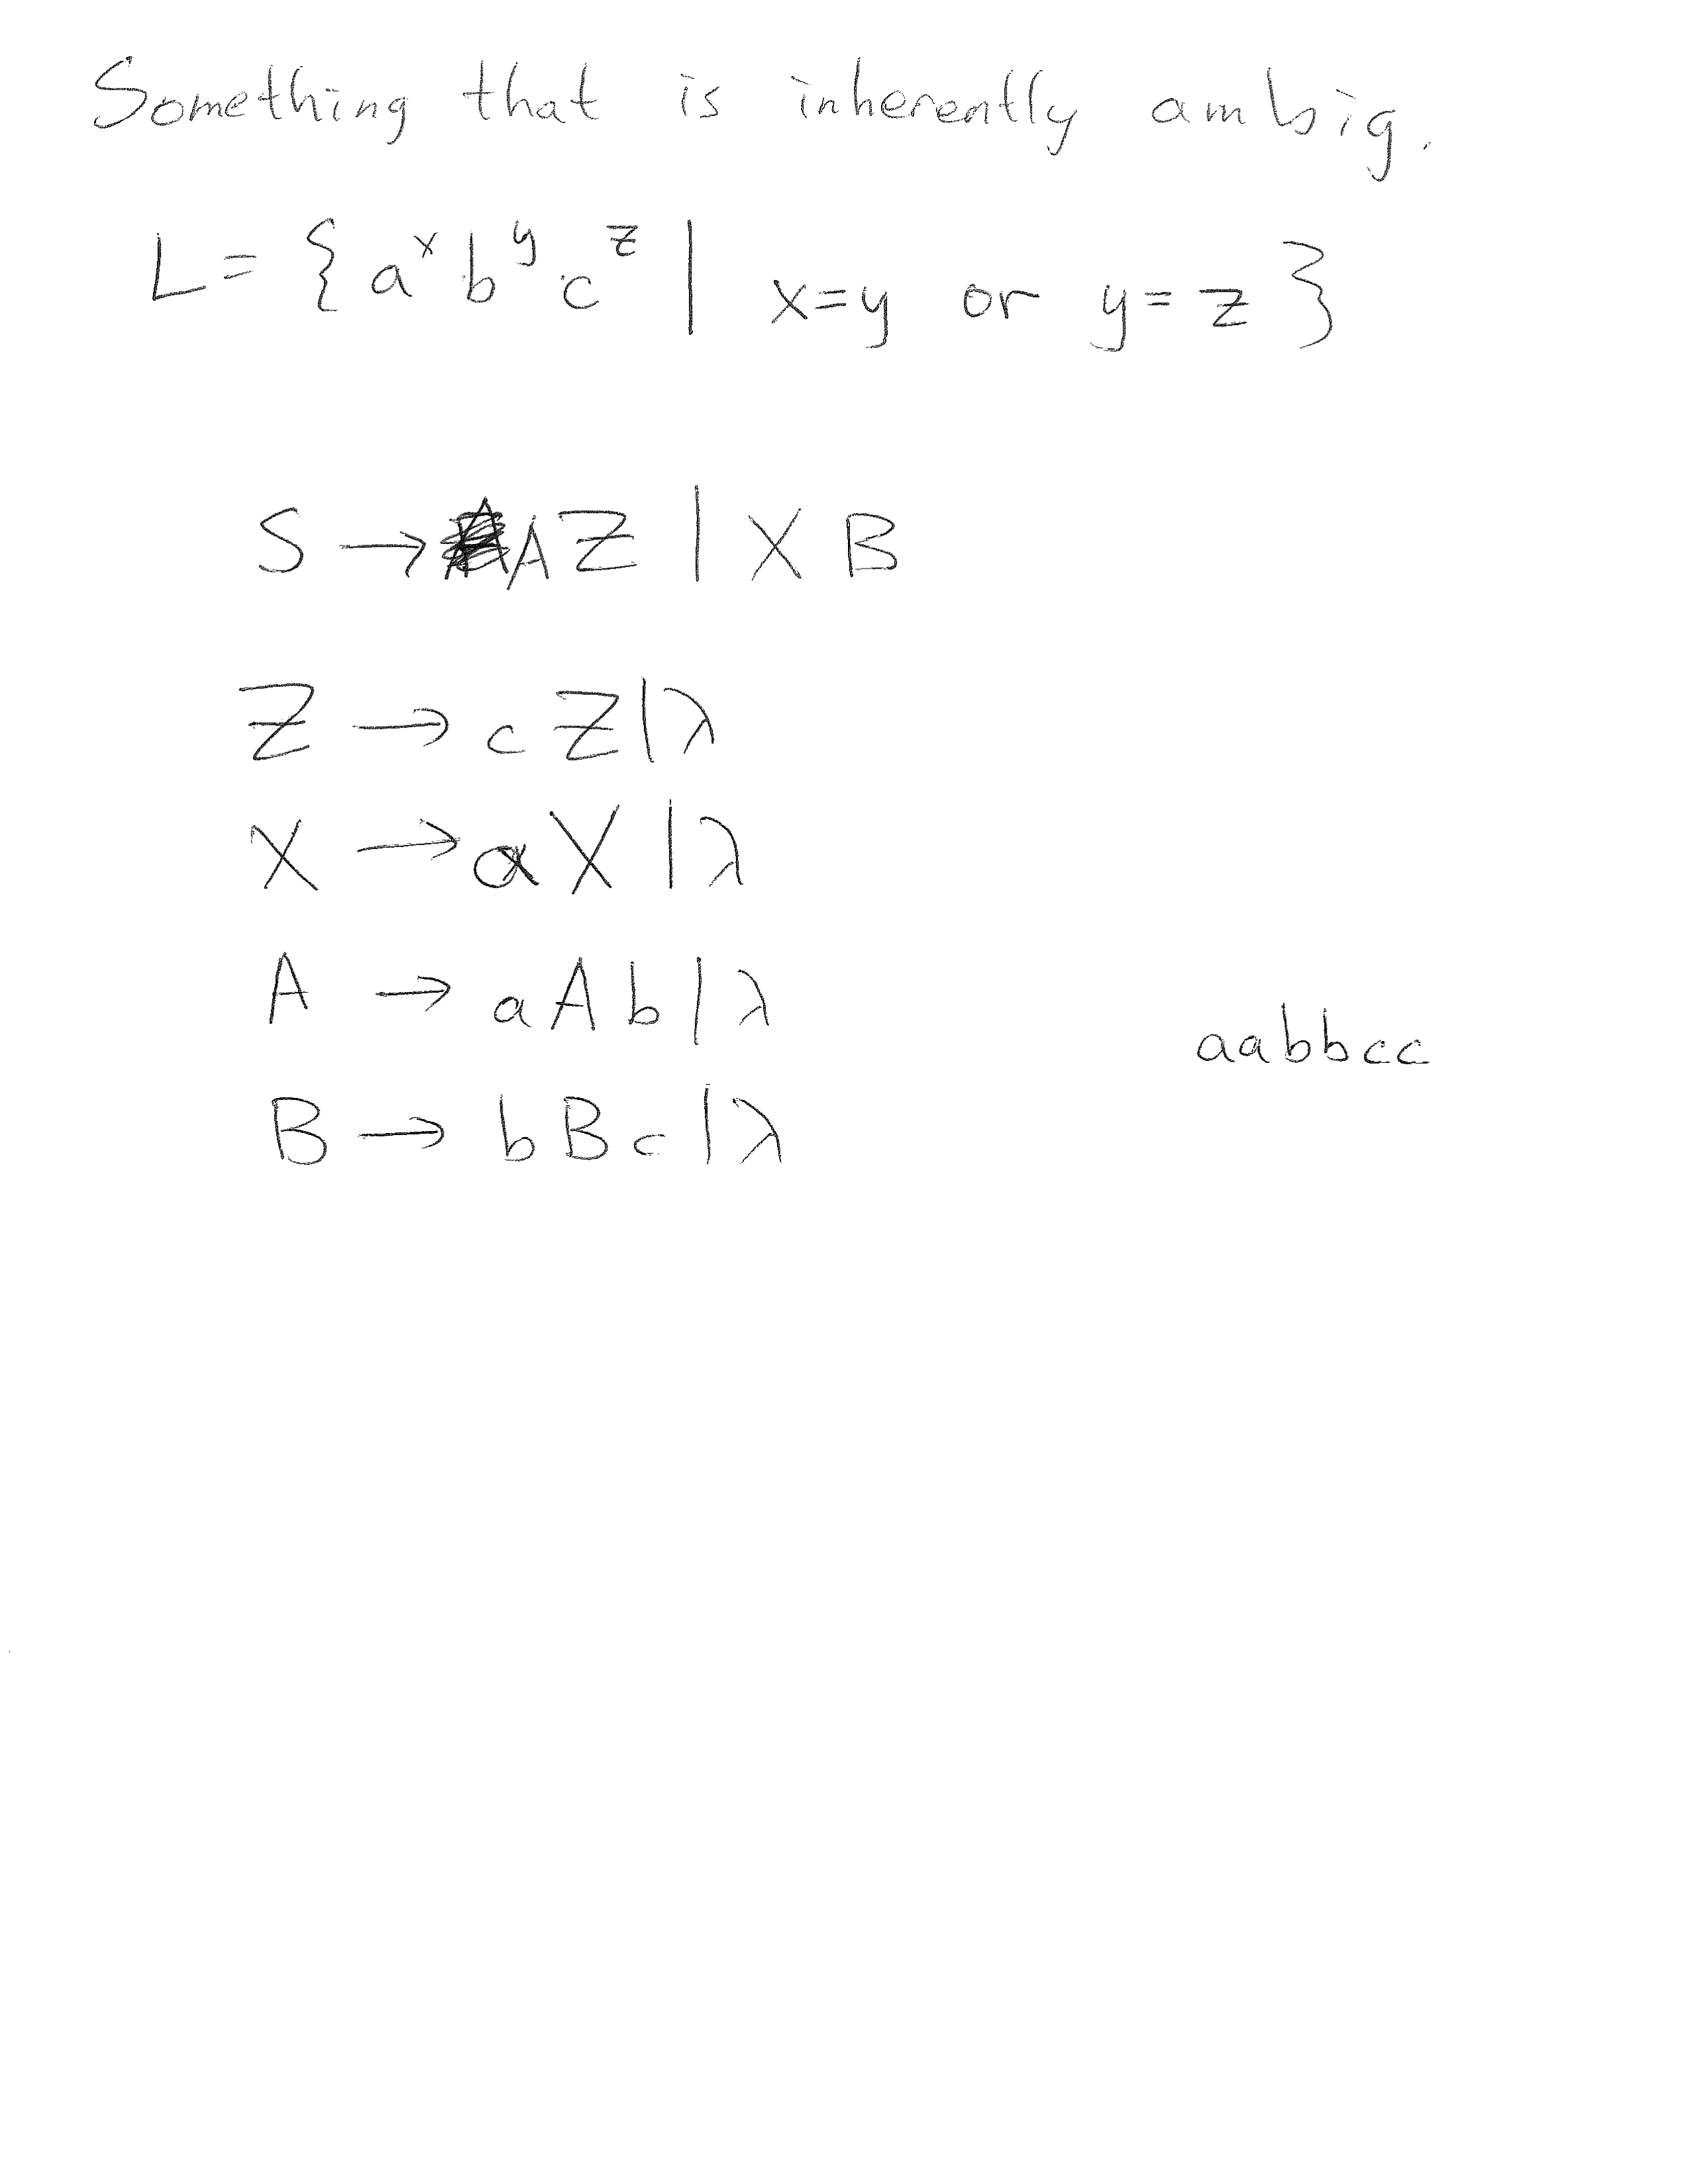 Something that is inherently ambig.
L = { aˣ bʸ cᶻ | x=y or y=z }
S → AZ | XB
Z → cZ|λ
X → aX|λ
A → aAb|λ
aabbcc
B → bBc|λ